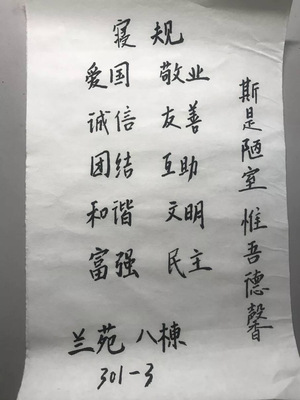 寝规
爱国 敬业
诚信 友善
团结 互助
和谐 文明
富强 民主
兰苑 八栋
301-3
斯是陋室 惟吾德馨